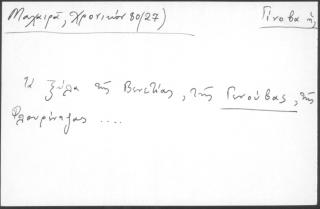 Μαχαιρᾶ, Χρονικόν 80/27)
Γένοβα ἡ
Τὰ ξύλα τῆς Βενετίας, τῆς Γενούβας, τῆς
Φλουρέντζας ....